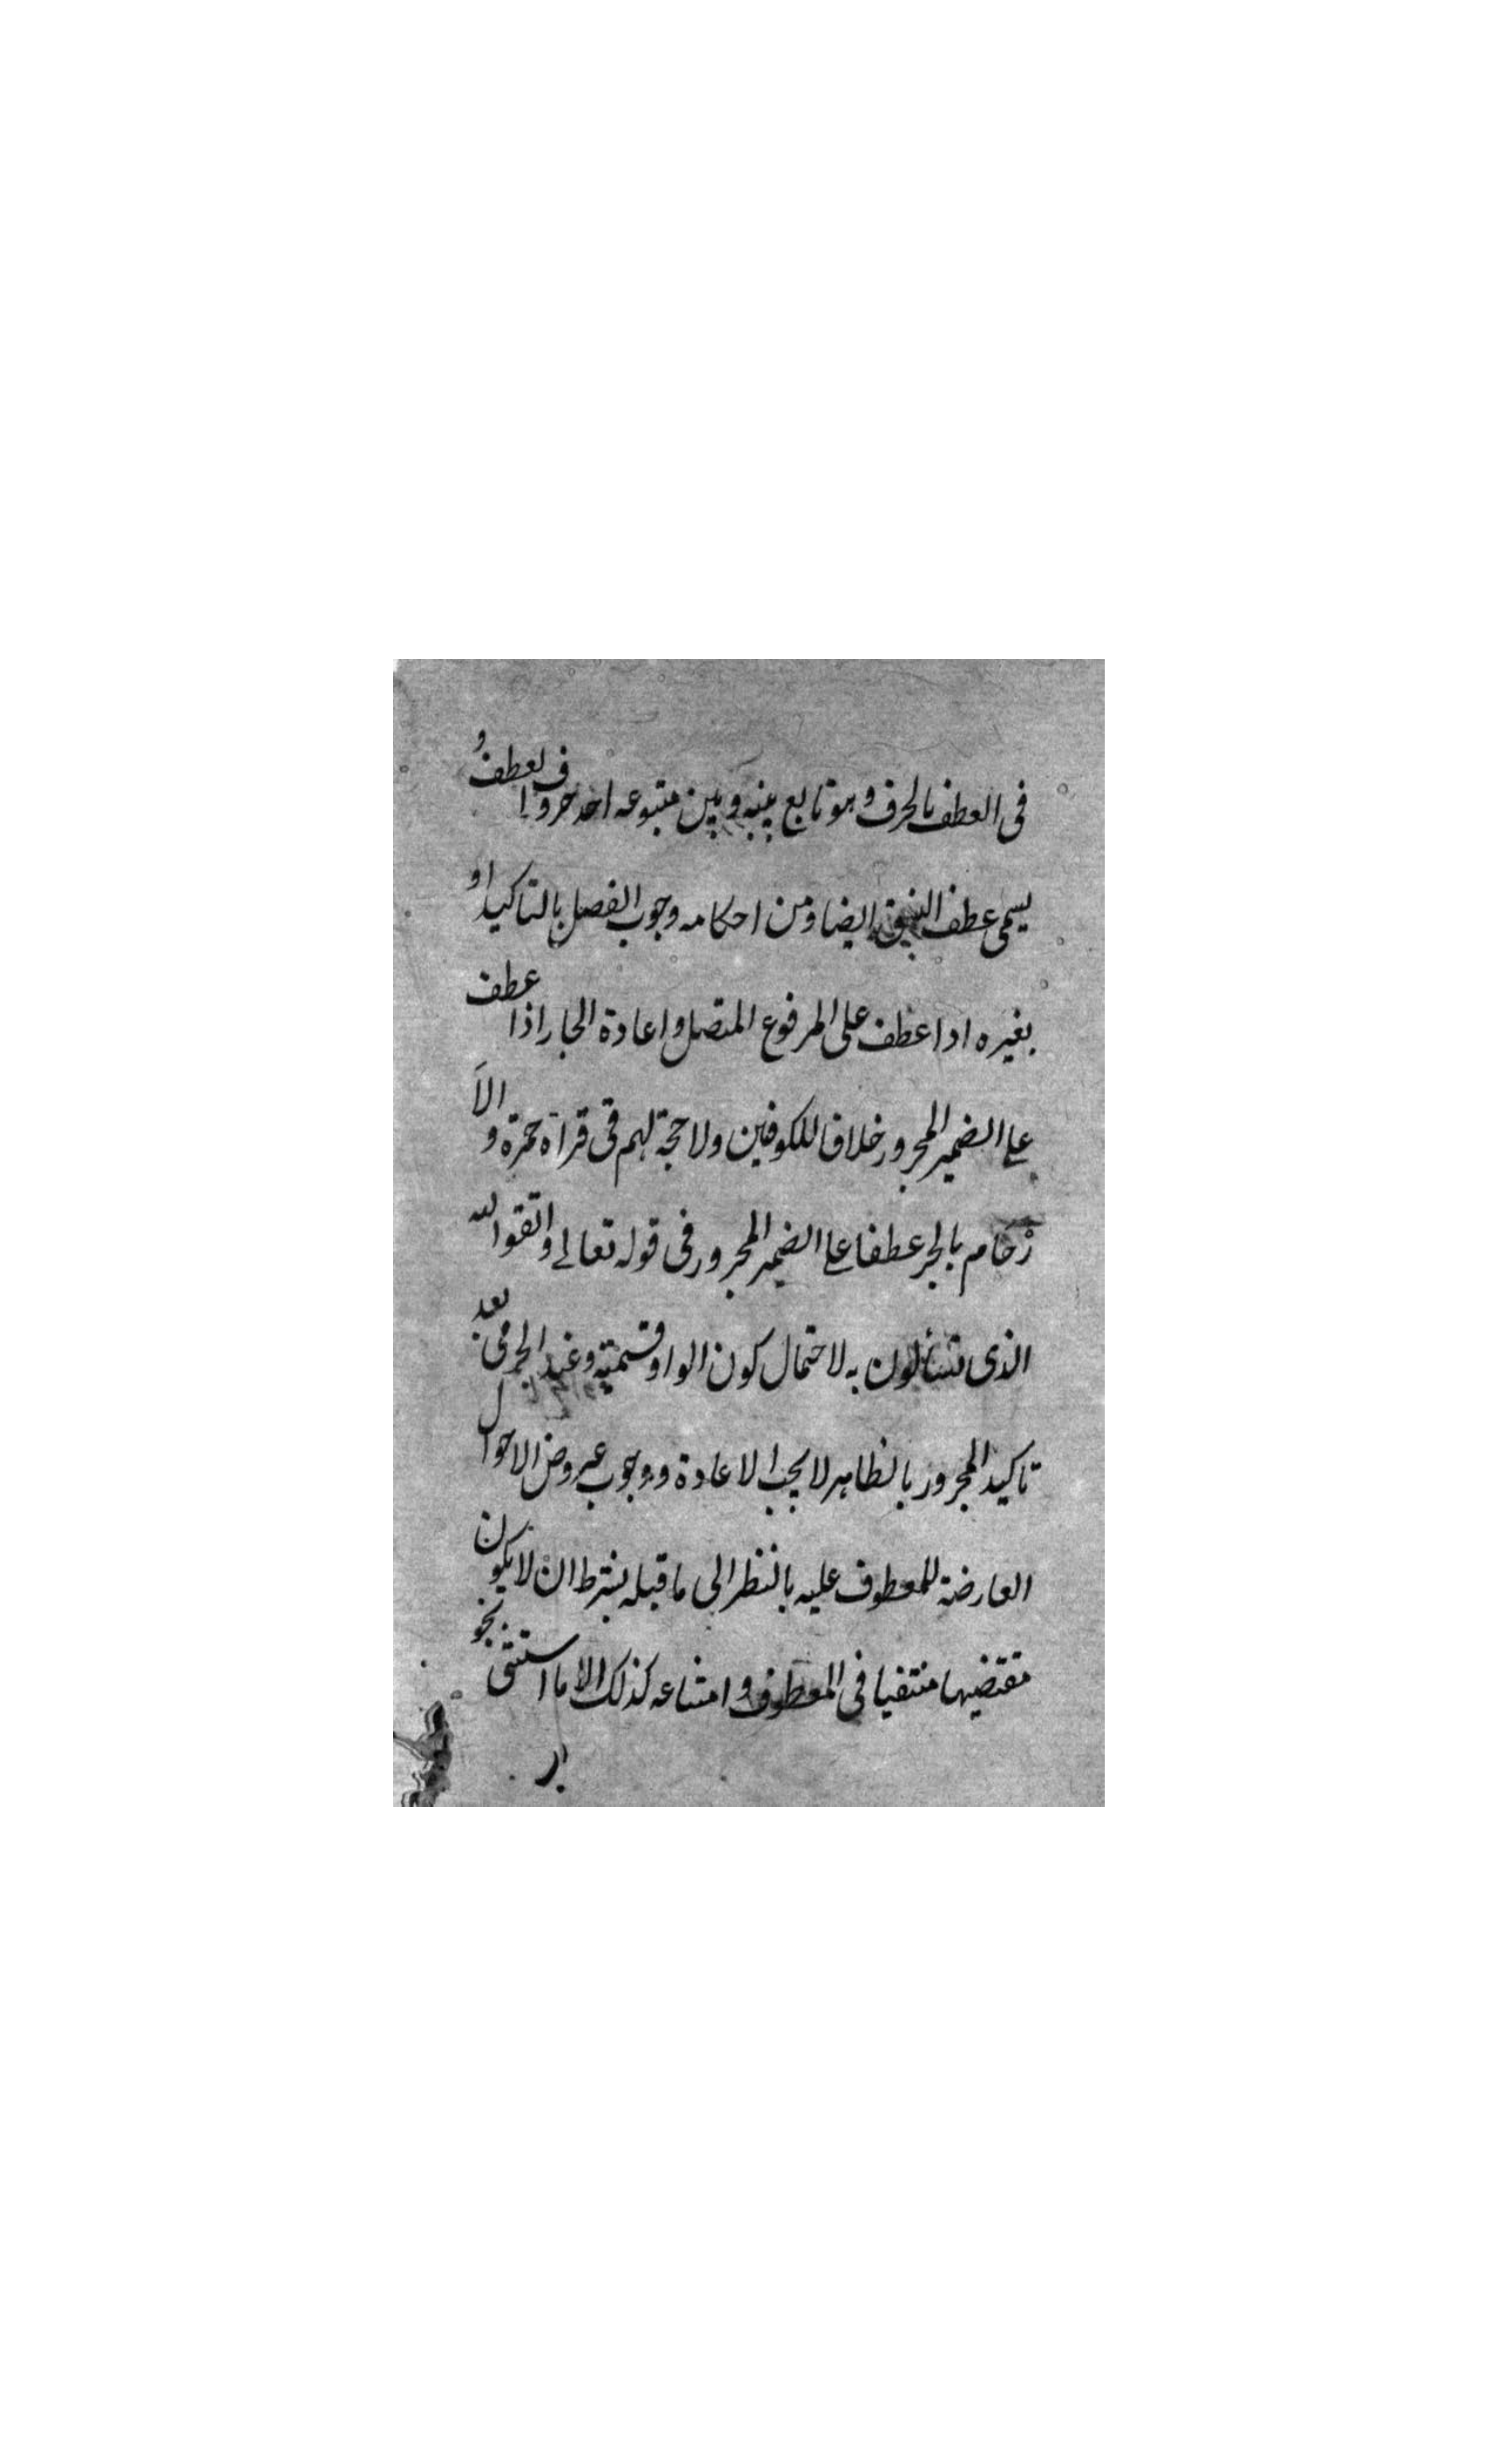 فى العطف بالحرف وهو تابع بينه وبين متبوعه احد حروف العطف و
يسمى عطف النسق ايضا ومن احكامه وجوب الفصل بالتاكيد او
بغيره اذا عطف على المرفوع المتصل واعادة الجار اذا عطف
على الضمير المجرور خلافا للكوفين ولا حجة لهم فى قراة حمزة والا
رْحَام بالجر عطفا على الضمير المجرور فى قوله تعالى واتقوا الله
الذى تسائلون به لاحتمال كون الواو قسمية وعند الجرمى بعد
تاكيد المجرور بالظاهر لا يجب الاعادة ووجوب عروض الاحوال
العارضة للمعطوف عليه بالنظر الى ما قبله بشرط ان لا يكون
مقتضيها منتفيا فى المعطوف وامتناعه كذلك الا ما استثنى نحو